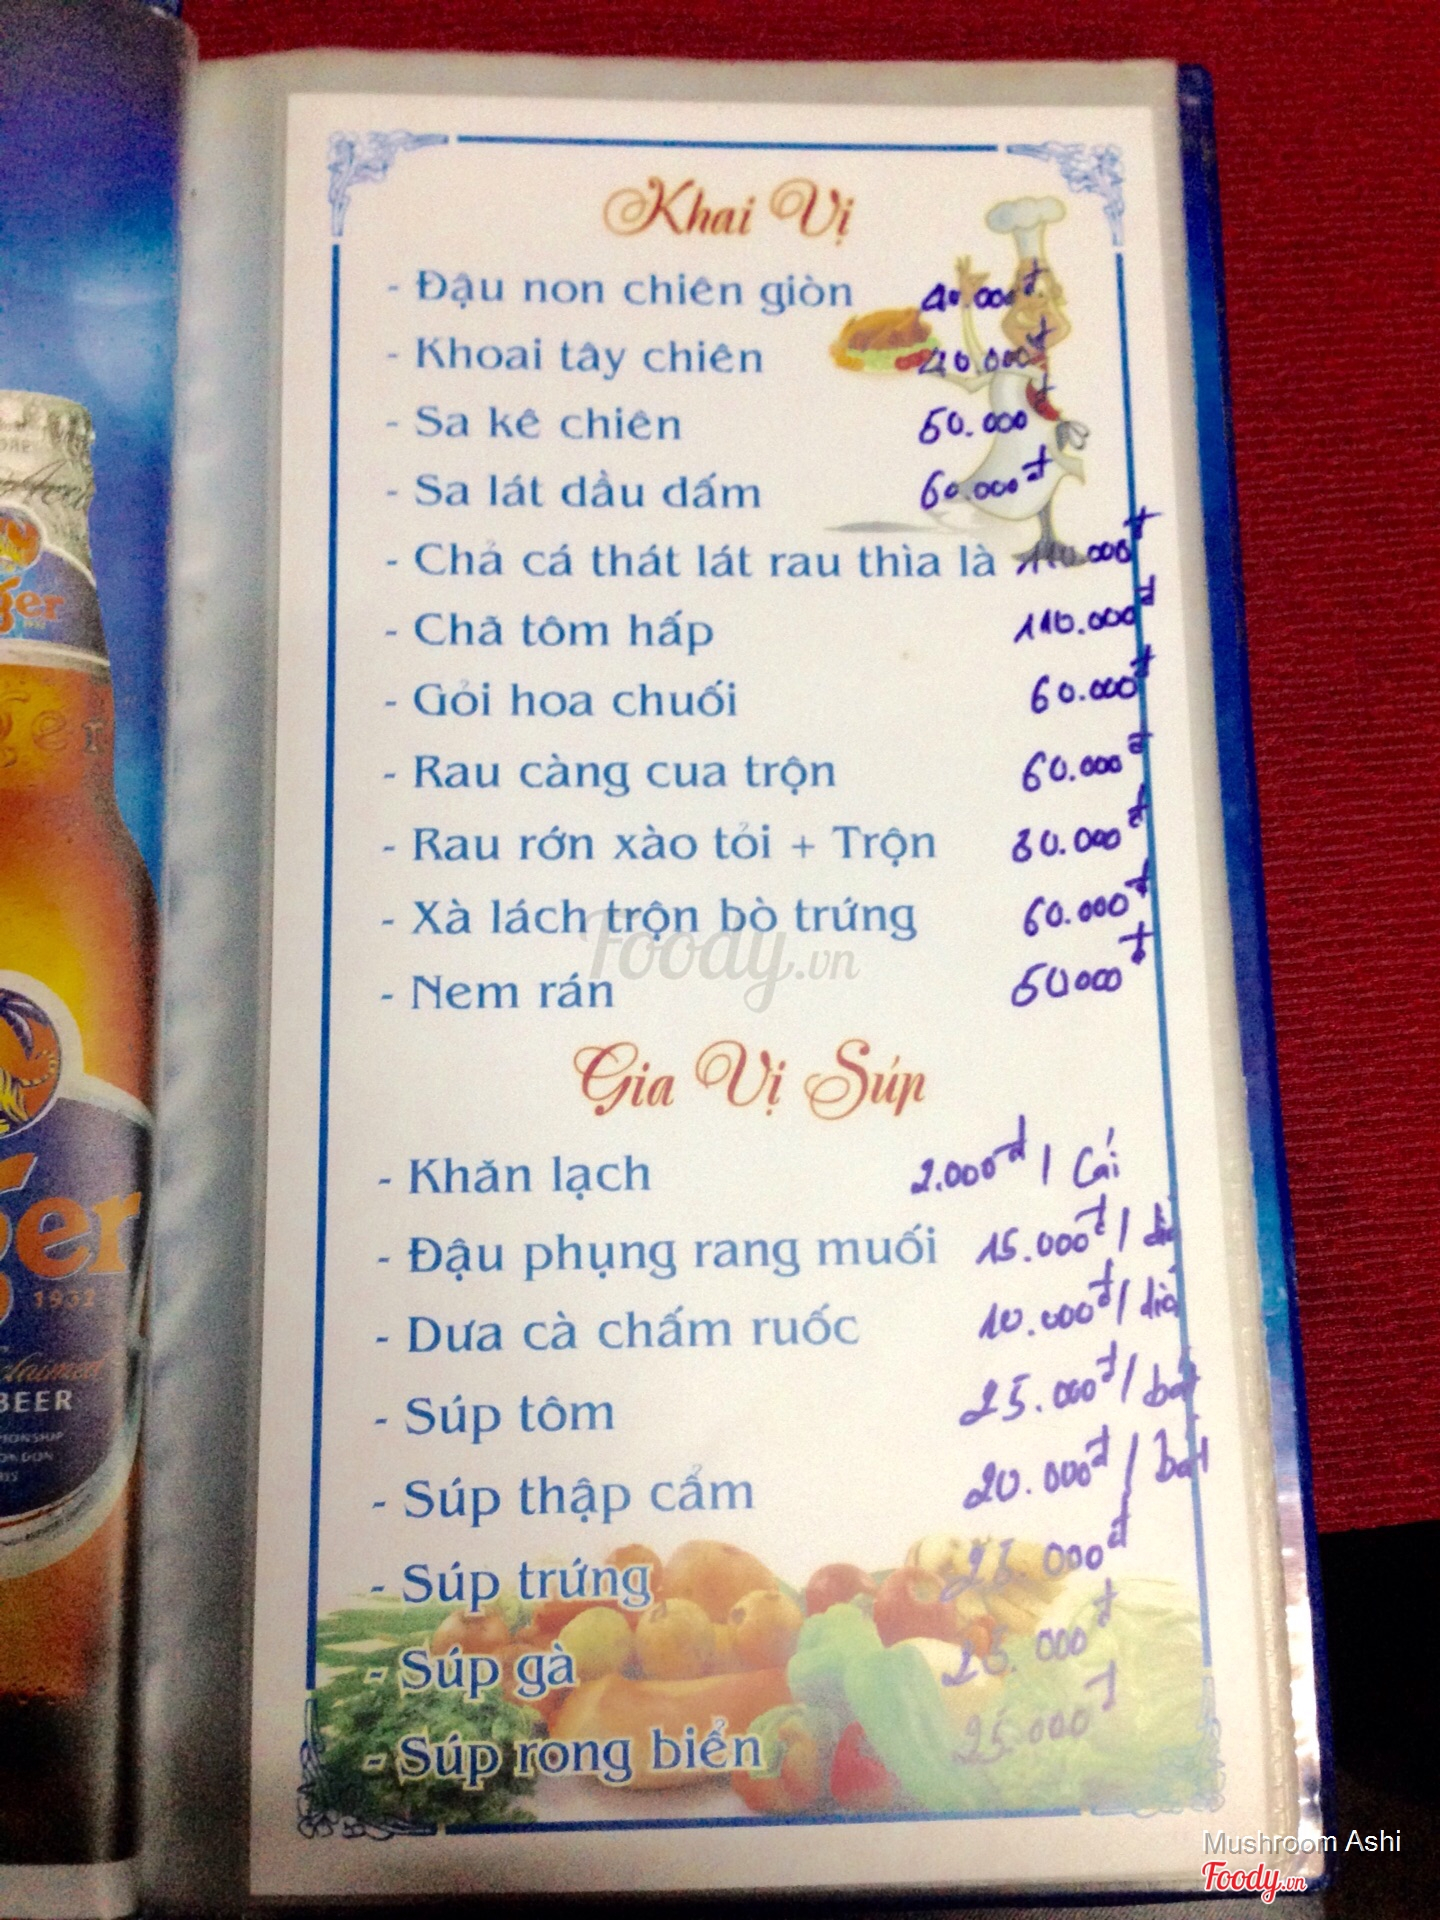 Khai Vị
- Đậu non chiên giòn 40.000đ
- Khoai tây chiên 40.000đ
- Sa kê chiên 50.000đ
- Sa lát dầu dấm 60.000đ
- Chả cá thát lát rau thìa là 110.000đ
- Chã tôm hấp 110.000đ
- Gỏi hoa chuối 60.000đ
- Rau càng cua trộn 60.000đ
- Rau rớn xào tỏi + Trộn 80.000đ
- Xà lách trộn bò trứng 60.000đ
- Nem rán 50000đ
Gia Vị Súp
- Khăn lạch 2.000đ / Cái
- Đậu phụng rang muối 15.000đ /
- Dưa cà chấm ruốc 10.000đ / dĩa
- Súp tôm 25.000đ / bát
- Súp thập cẩm 20.000đ / bát
- Súp trứng 25.000đ
- Súp gà 25.000đ
- Súp rong biển 25.000đ
Foody.vn
ger
1932
BEER
Mushroom Ashi
Foody.vn